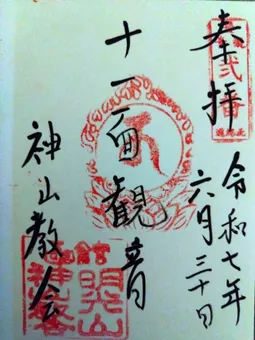 奉拝
令和七年
六月三十日
十一面観音
神山教会